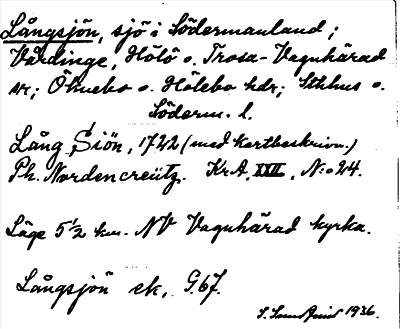 Långsjön, sjö i Södermanland;
Vårdinge, Hölö o. Trosa-Vagnhärad
sr; Öknebo o. Hölebo hdr; Sthlms o.
Söderm. l.
Lång Siön, 1722 (med kartbeskrivn.)
Ph. Nordencreütz. KrA, XXII, N:o 24.
Läge 5 1/2 km. NV Vagnhärad kyrka.
Långsjön ek, G.67.
1936.